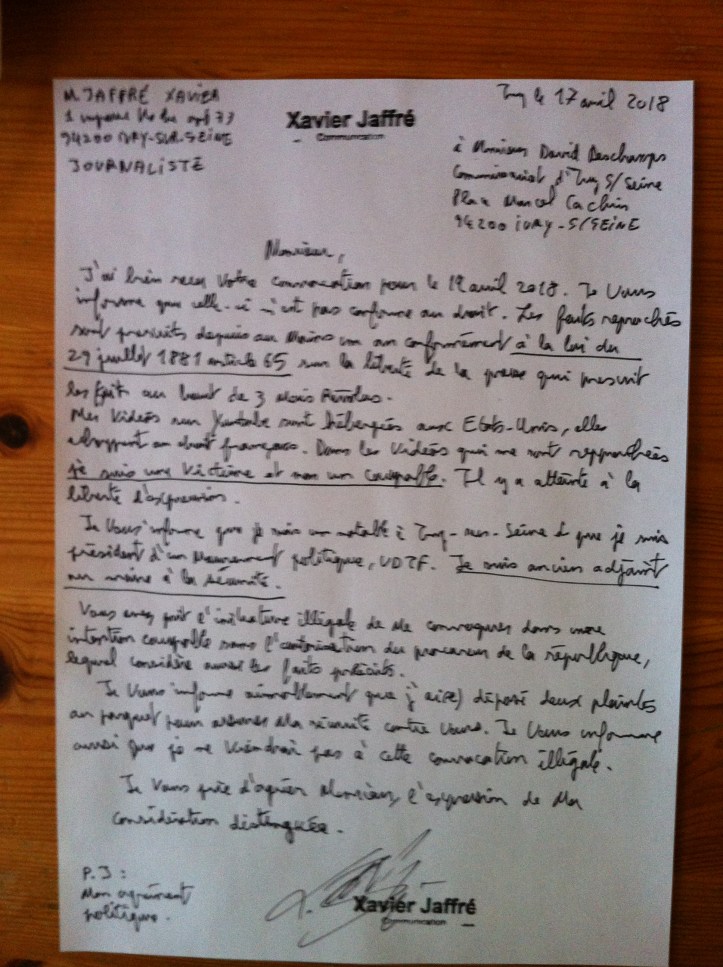 M. JAFFRÉ XAVIER
1 impasse apt 73
94200 IVRY-SUR-SEINE
JOURNALISTE
Xavier Jaffré
Communication
Ivry le 17 avril 2018
à Monsieur David Deschamps
Commissariat d'Ivry S/Seine
Place Marcel Cachin
94200 IVRY-S/SEINE
Monsieur,
J'ai bien reçu votre convocation pour le 19 avril 2018. Je vous
informe que celle-ci n'est pas conforme au droit. Les faits reprochés
sont prescrits depuis au moins un an conformément à la loi du
29 juillet 1881 article 65 sur la liberté de la presse qui prescrit
les fait au bout de 3 mois révolus.
Mes vidéos sur Youtube sont hébergées aux Etats-Unis, elles
au droit français. Dans les vidéos qui me sont reprochées
je suis une victime et non un coupable. Il y a atteinte à la
liberté d'expression.
Je vous informe que je suis un notable à Ivry-sur-Seine & que je suis
président d'un mouvement politique, UDTF. Je suis ancien adjoint
au maire à la sécurité.
Vous avez pris l'initiative illégale de me convoquer dans une
intention coupable sans l'autorisation du procureur de la république,
lequel considère aussi les faits précités.
Je vous informe aimablement que j'ai déposé deux plaintes
au parquet pour assurer ma sécurité contre vous. Je vous informe
aussi que je ne viendrai pas à cette convocation illégale.
Je vous prie d'agréer Monsieur, l'expression de ma
considération distinguée.
P.J :
Mon agrément
politique.
Xavier Jaffré
Communication